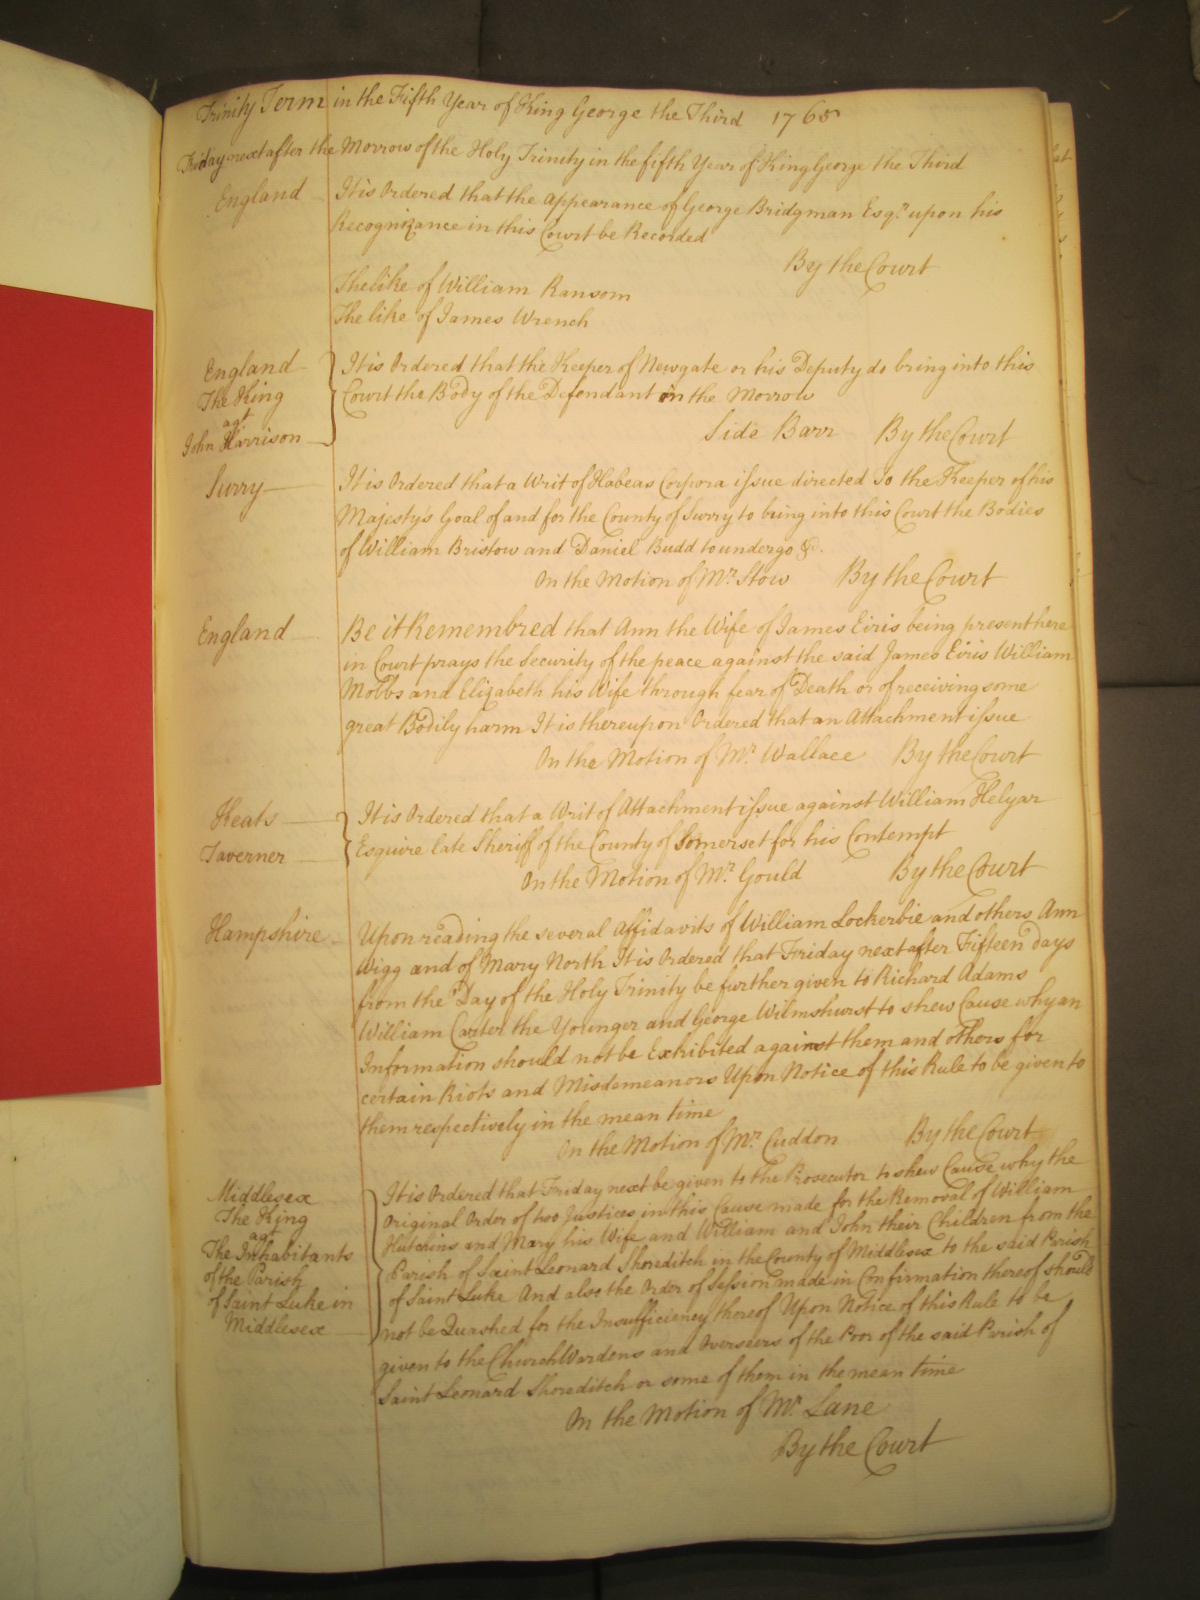 Trinity Term in the Fifth Year of King George the Third 1765
Friday next after the Morrow of the Holy Trinity in the fifth Year of King George the Third
England It is Ordered that the Appearance of George Bridgman Esqr. upon his
Recognizance in this Court be Recorded
By the Court
The like of William Ransom
The like of James Wrench
England It is Ordered that the Keeper of Newgate or his Deputy do bring into this
The King Court the Body of the Defendant on the Morrow
agt
John Harrison Side Barr By the Court
Surry It is Ordered that a Writ of Habeas Corpora issue directed To the Keeper of his
Majesty's Goal of and for the County of Surry to bring into this Court the Bodies
of William Bristow and Daniel Budd to undergo &c.
On the Motion of Mr. Stow By the Court
England Be it Remembred that Ann the Wife of James Eiris being present here
in Court prays the Security of the peace against the said James Eiris William
Mobbs and Elizabeth his Wife through fear of Death or of receiving some
great Bodily harm It is thereupon Ordered that an Attachment issue
On the Motion of Mr. Wallace By the Court
Keats It is Ordered that a Writ of Attachment issue against William Helyar
Taverner Esquire late Sheriff of the County of Somerset for his Contempt
On the Motion of Mr. Gould By the Court
Hampshire Upon reading the several Affidavits of William Lockerbie and others Ann
Wigg and of Mary North It is Ordered that Friday next after Fifteen days
from the Day of the Holy Trinity be further given to Richard Adams
William Carter the Younger and George Wilmshurst to shew Cause why an
Information should not be Exhibited against them and others for
certain Riots and Misdemeanors Upon Notice of this Rule to be given to
them respectively in the mean time
On the Motion of Mr. Cuddon By the Court
Middlesex It is Ordered that Friday next be given to the Prosecutor to shew Cause why the
The King Original Order of two Justices in this Cause made for the Removal of William
agt Hutchins and Mary his Wife and William and John their Children from the
The Inhabitants Parish of Saint Leonard Shoreditch in the County of Middlesex to the said Parish
of the Parish of Saint Luke And also the Order of Session made in Confirmation thereof should
of Saint Luke in not be Quashed for the Insufficiency thereof Upon Notice of this Rule to be
Middlesex given to the Church Wardens and Overseers of the Poor of the said Parish of
Saint Leonard Shoreditch or some of them in the mean time
On the Motion of Mr. Lane
By the Court